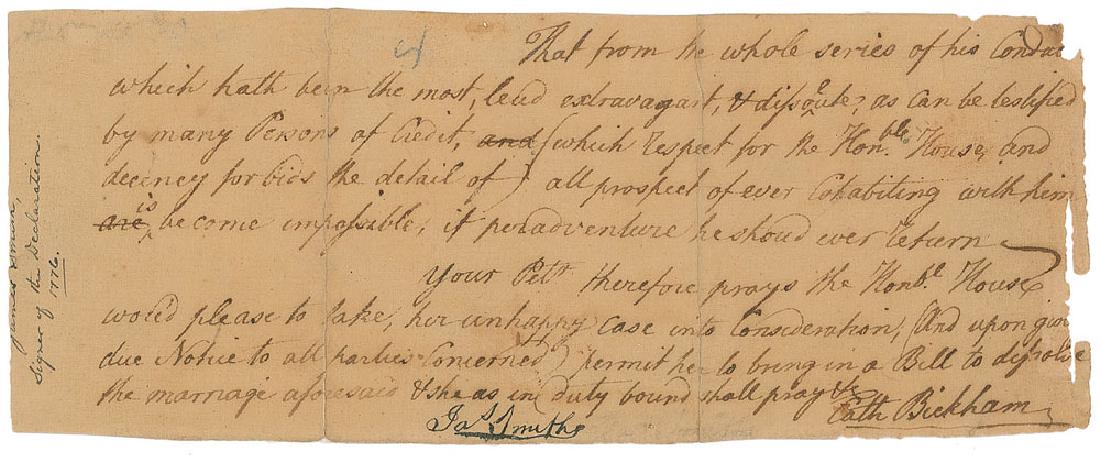 That from the whole series of his Conduc
which hath been the most, leud extravagant, & dissoute, as can be testified
by many Persons of Credit, and (which respect for the Honble. House, and
decincy forbids the detail of) all prospect of ever Cohabiting with him
are is become impossible, if peradventure he shoud ever return
Your Petr. therefore prays the Honble. House
would please to take, her unhappy case into Consideration, (And upon givi
due Notice to all parties Concerned) permit her to bring in a Bill to dissolve
the marriage aforesaid & she as in duty bound shall pray &c
Cath Bickham
Jas. Smith
James Smith,
Signer of the Declaration.
1776.